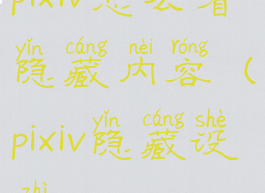 pixiv怎么看
yǐn cáng nèi róng
隐藏内容（
yǐn cáng shè
pixiv隐藏设
zhì